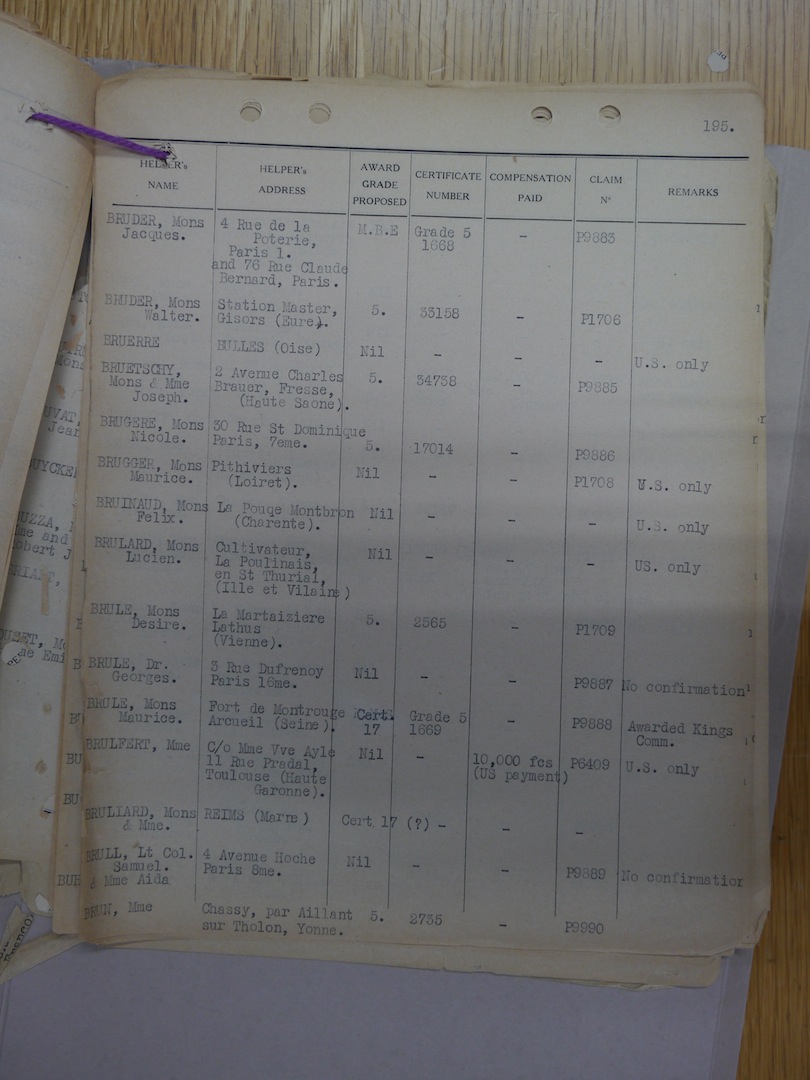 195.
HELPER's NAME | HELPER's ADDRESS | AWARD GRADE PROPOSED | CERTIFICATE NUMBER | COMPENSATION PAID | CLAIM N° | REMARKS
BRUDER, Mons 4 Rue de la M.B.E Grade 5 - P9883
Jacques. Poterie, 1668
Paris 1.
and 76 Rue Claude
Bernard, Paris.
BRUDER, Mons Station Master, 5. 33158 - P1706
Walter. Gisors (Eure).
BRUERRE BULLES (Oise) Nil - - - U.S. only
BRUETSCHY, 2 Avenue Charles 5. 34738 - P9885
Mons & Mme Brauer, Fresse,
Joseph. (Haute Saone).
BRUGERE, Mons 30 Rue St Dominique
Nicole. Paris, 7eme. 5. 17014 - P9886
BRUGGER, Mons Pithiviers Nil - - P1708 U.S. only
Maurice. (Loiret).
BRUINAUD, Mons La Pouqe Montbron Nil - - - U.S. only
Felix. (Charente).
BRULARD, Mons Cultivateur, Nil - - - US. only
Lucien. La Poulinais,
en St Thurial,
(Ille et Vilaine)
BRULE, Mons La Martaiziere 5. 2565 - P1709
Desire. Lathus
(Vienne).
BRULE, Dr. 3 Rue Dufrenoy Nil - - P9887 No confirmation
Georges. Paris 16me.
BRULE, Mons Fort de Montrouge Cert. Grade 5 - P9888 Awarded Kings
Maurice. Arcueil (Seine). 17 1669 Comm.
BRULFERT, Mme C/o Mme Vve Ayle Nil - 10,000 fcs P6409 U.S. only
11 Rue Pradal, (US payment)
Toulouse (Haute
Garonne).
BRULIARD, Mons REIMS (Marne) Cert. 17 (?) - - -
& Mme.
BRULL, Lt Col. 4 Avenue Hoche Nil - - P9889 No confirmation
Samuel. Paris 8me.
& Mme Aida
BRUN, Mme Chassy, par Aillant 5. 2735 - P9990
sur Tholon, Yonne.